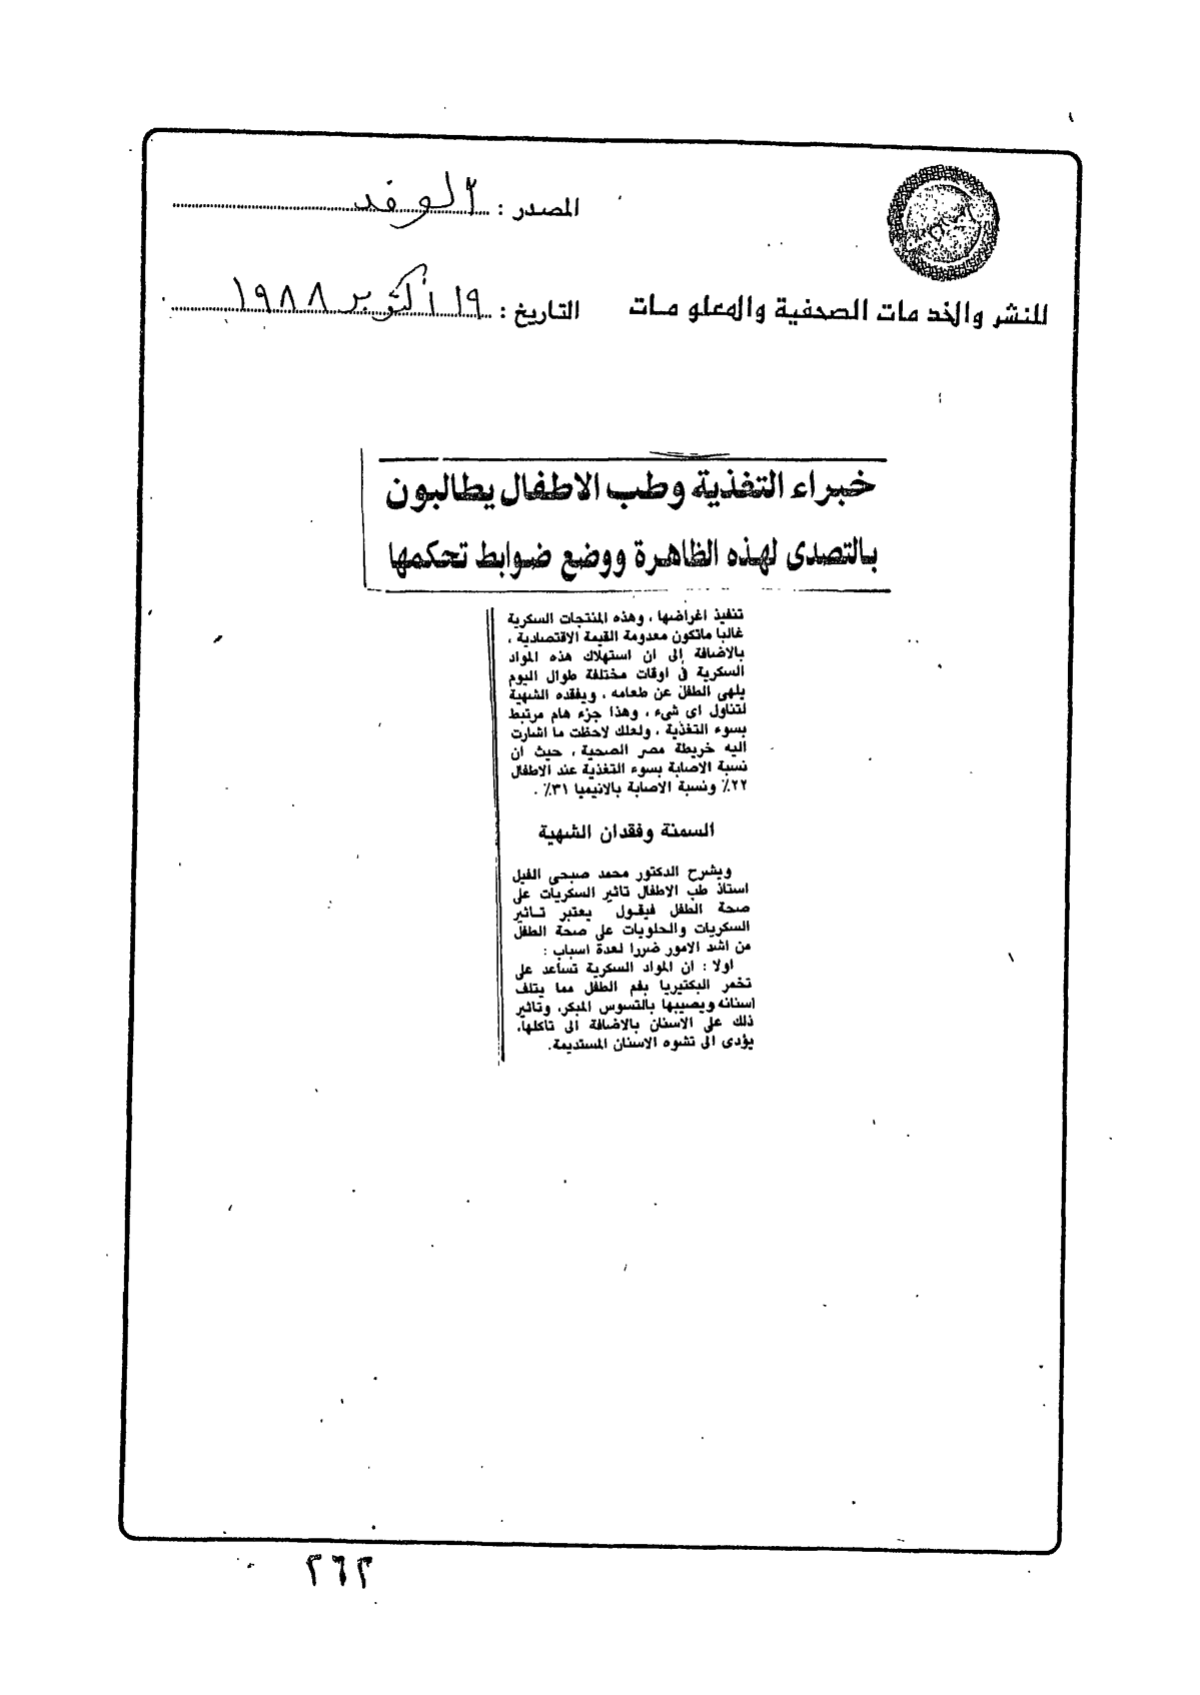 المصدر : الوفد
للنشر والخدمات الصحفية والمعلومات
التاريخ : ١٩ أكتوبر ١٩٨٨
خبراء التغذية وطب الاطفال يطالبون
بالتصدى لهذه الظاهرة ووضع ضوابط تحكمها
تنفيذ اغراضها ، وهذه المنتجات السكرية
غالبا ماتكون معدومة القيمة الاقتصادية ،
بالاضافة إلى ان استهلاك هذه المواد
السكرية فى اوقات مختلفة طوال اليوم
يلهى الطفل عن طعامه ، ويفقده الشهية
لتناول اى شىء ، وهذا جزء هام مرتبط
بسوء التغذية ، ولعلك لاحظت ما اشارت
اليه خريطة مصر الصحية ، حيث ان
نسبة الاصابة بسوء التغذية عند الاطفال
٢٢٪ ونسبة الاصابة بالانيميا ٣١٪ .
السمنة وفقدان الشهية
ويشرح الدكتور محمد صبحى الفيل
استاذ طب الاطفال تاثير السكريات على
صحة الطفل فيقول يعتبر تاثير
السكريات والحلويات على صحة الطفل
من اشد الامور ضررا لعدة اسباب :
اولا : ان المواد السكرية تساعد على
تخمر البكتيريا بفم الطفل مما يتلف
اسنانه ويصيبها بالتسوس المبكر، وتاثير
ذلك على الاسنان بالاضافة الى تاكلها،
يؤدى الى تشوه الاسنان المستديمة.
٢٦٢